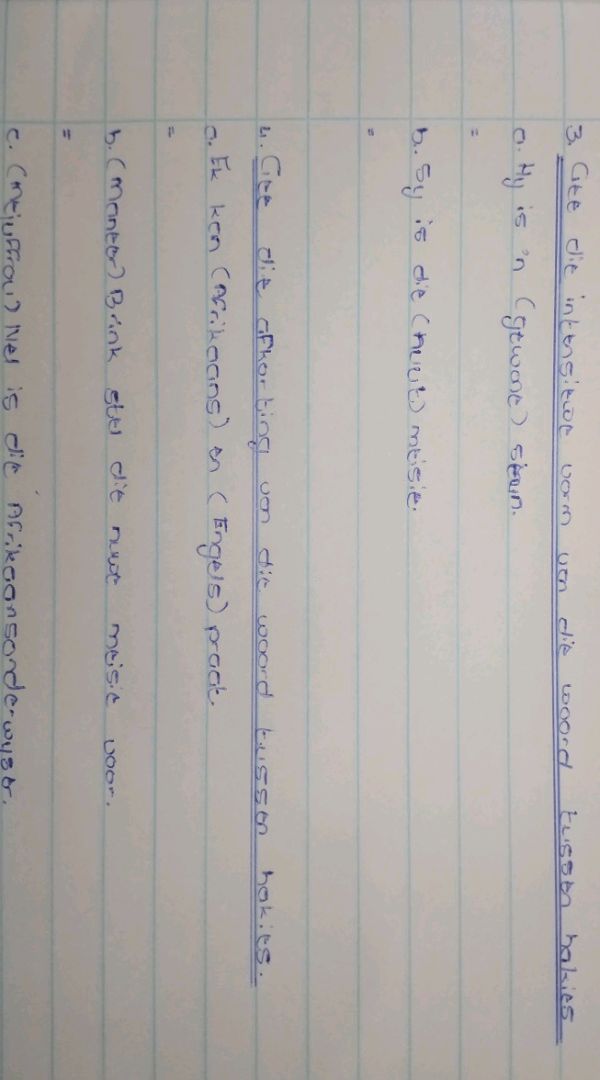 3. Gee die intensiewe vorm van die woord tussen hakies
a. Hy is 'n (gewone) seun.
=
b. Sy is die (nuut) meisie.
=
4. Gee die afkorting van die woord tussen hakies.
a. Ek kan (Afrikaans) en (Engels) praat.
=
b. (Maneer) Brink stel die nuwe meisie voor.
=
c. (Mejuffrou) Nel is die Afrikaansonderwyser.